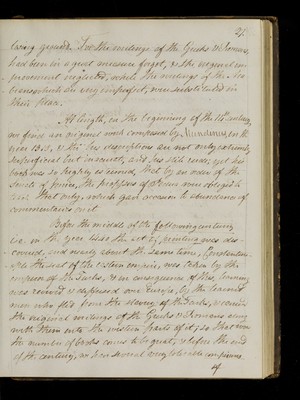 21
losing ground. For the writings of the Greeks & Romans,
had been in a great measure forgot, & the original im-
provement neglected; while the writings of the Ara-
bians which are very imperfect, were substituted in
their place.
At length, in the beginning of the 14th Century
we find an original work composed by Mundinus, in the
year 1315, & tho' his descriptions are not only extremely
superficial but incorrect, and his stile even, yet his
book was so highly esteemed, that by an order of the
Senate of Venice, the professors of were obliged to
that only, which gave occasion to abundance of
commentaries on it.
Before the middle of the following century
i.e. in the year 1440 the art of printing was dis-
covered, and nearly about the same time, Constantin-
ople the seat of the eastern empire, was taken by the
emperor of the Turks, & in consequence of this learning
was revived & dispersed over Europe, by the learned
men who fled from the slavery of the Turks, & carried
the original writings of the Greeks & Romans along
with them into the western parts of it; so that now
the number of books came to be great, & before the end
of the century, we have several very tolerable compossions
of